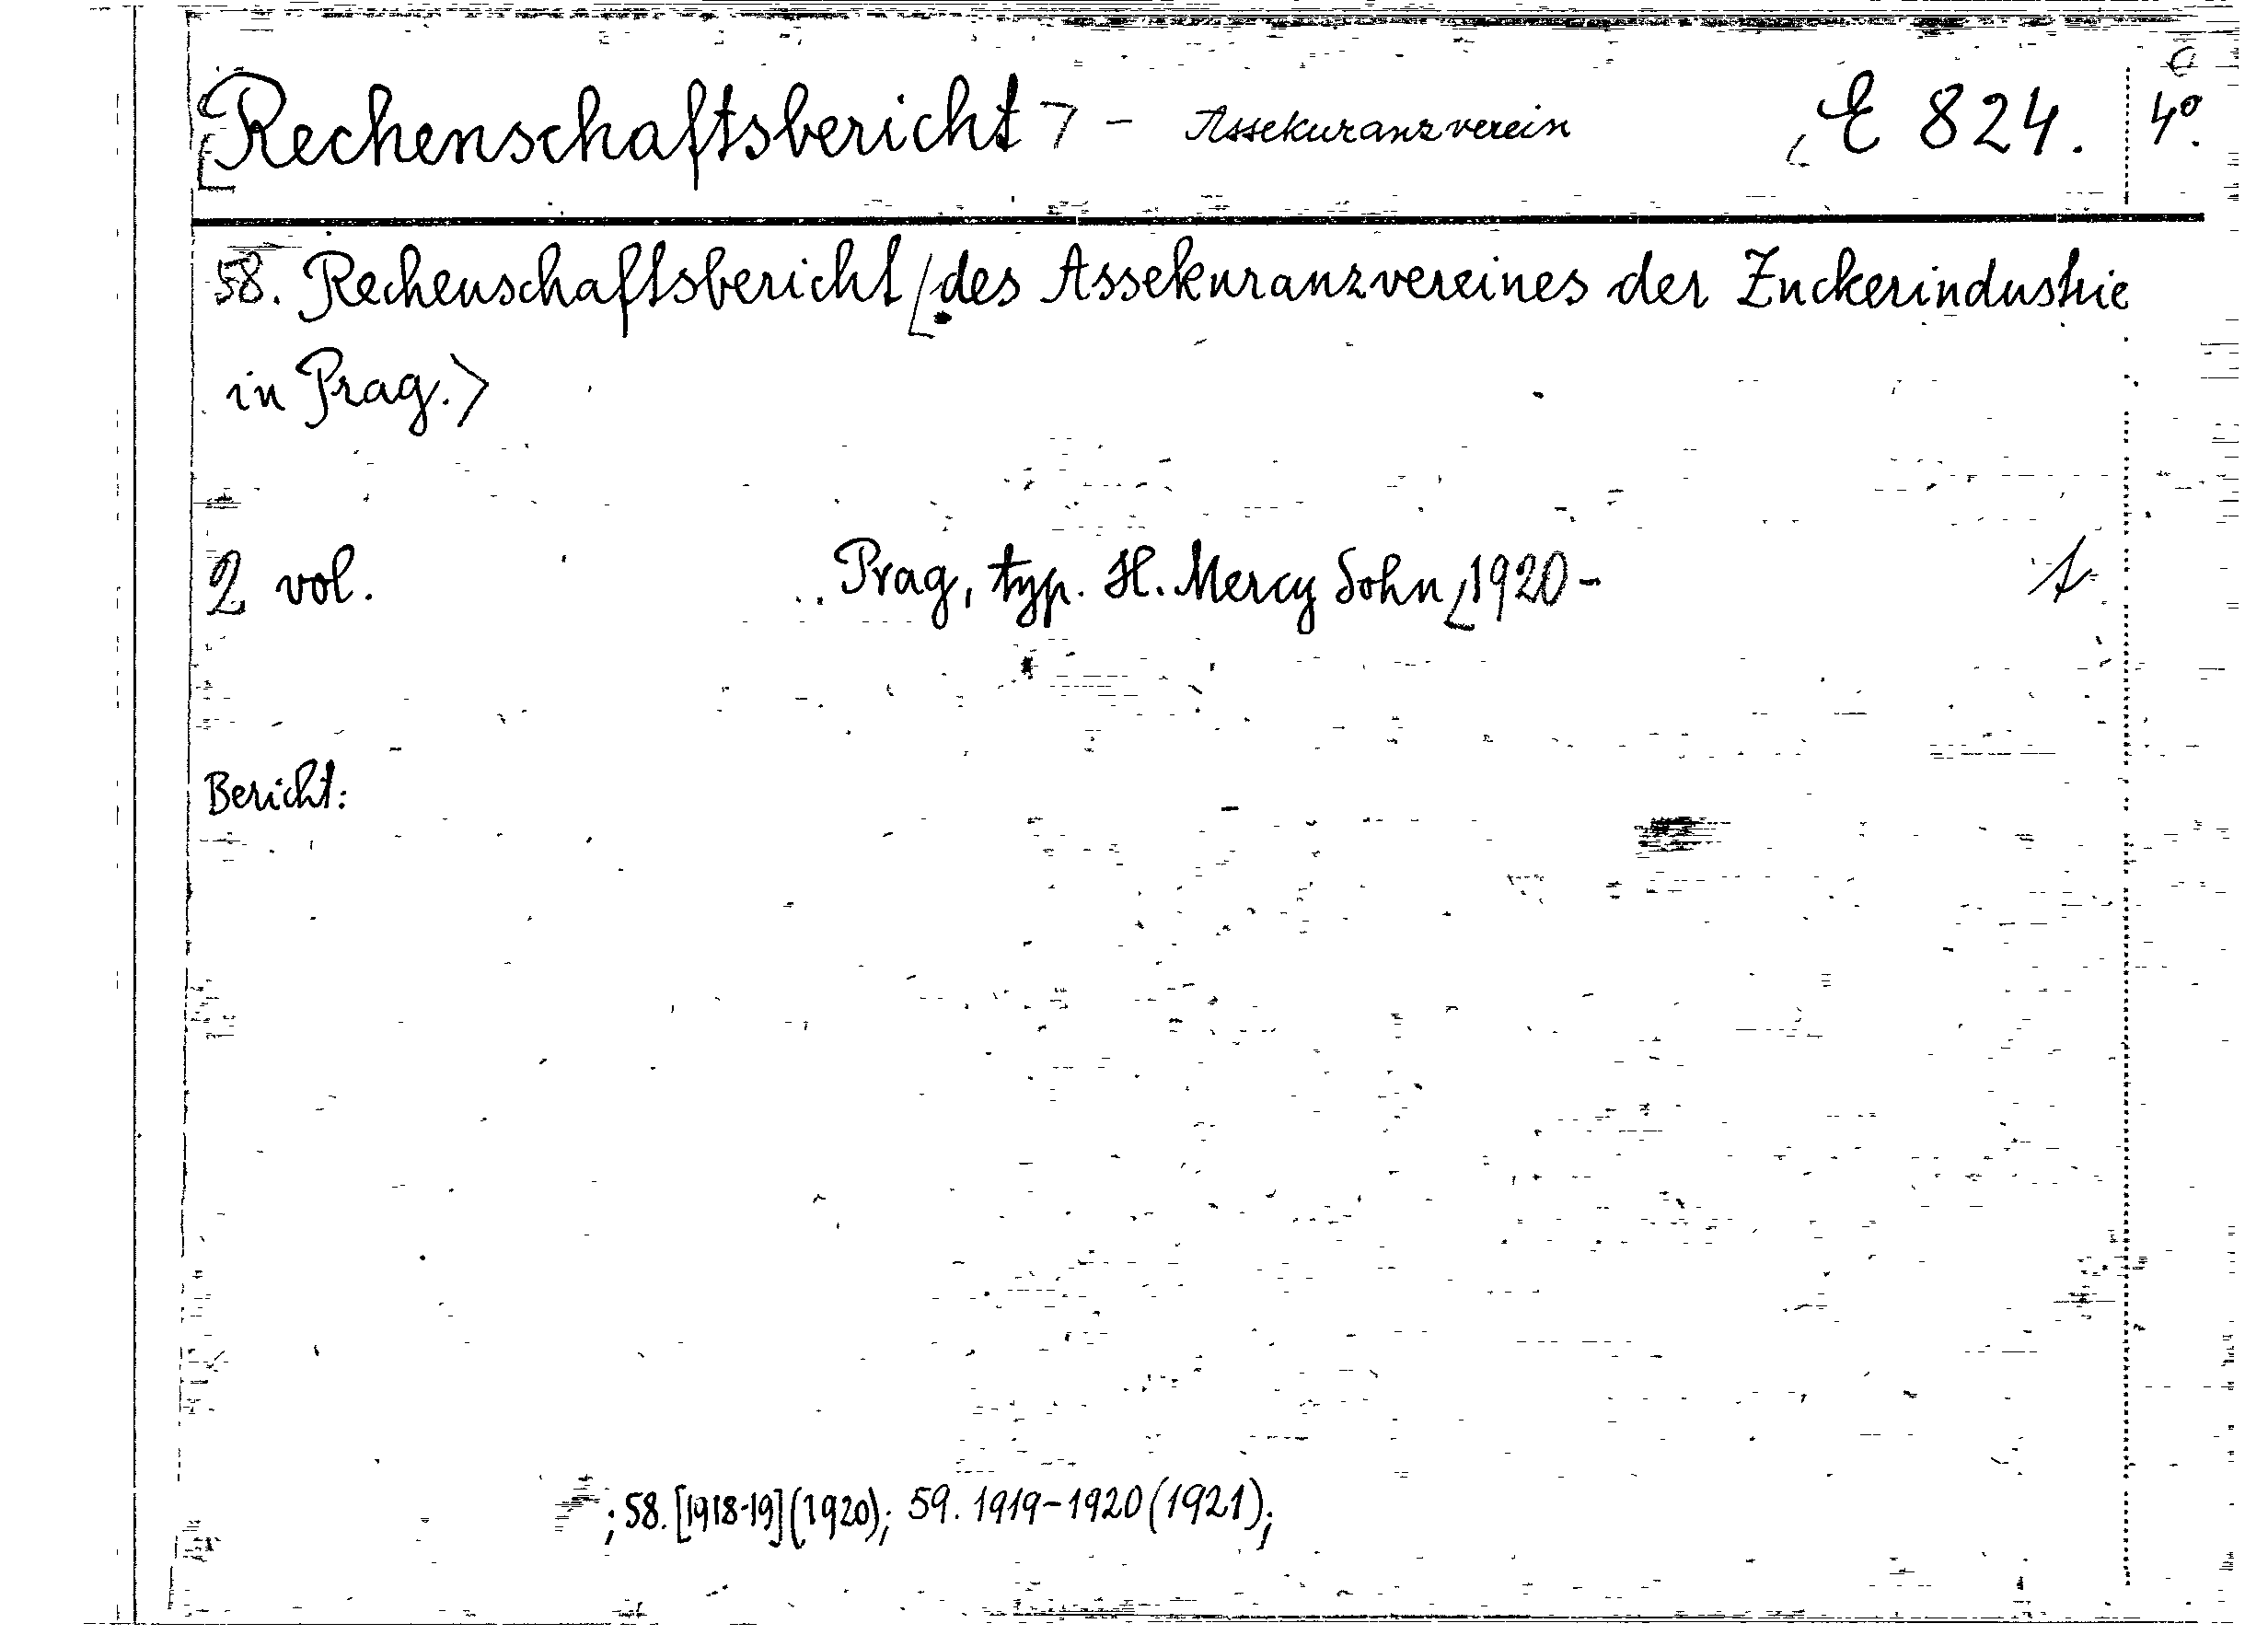 [Rechenschaftsbericht] - Assekuranzverein E 824. 4°.
58. Rechenschaftsbericht [des Assekuranzvereines der Zuckerindustrie
in Prag.>
2 vol. Prag, typ. H. Mercy Sohn, 1920-
Bericht:
; 58. [1918-19] (1920); 59. 1919-1920 (1921);